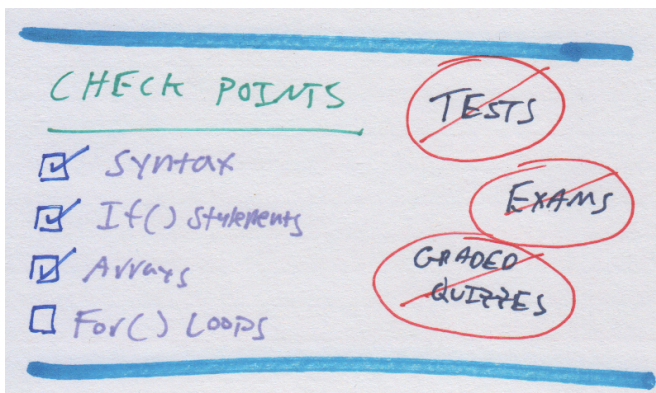 CHECK POINTS
Syntax
If() Statements
Arrays
For() Loops
TESTS
EXAMS
GRADED
QUIZZES